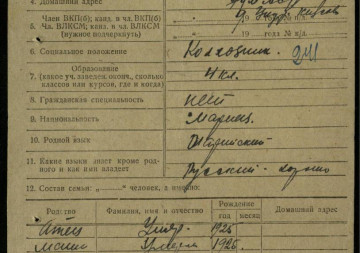 4. Домашний адрес
5. Член ВКП(б); канд. в чл. ВКП(б)
Чл. ВЛКСМ; канд. в чл. ВЛКСМ
(нужное подчеркнуть)
19 года № п/б.
19 года № п/д.
6. Социальное положение Колхозник. 241
Образование
7. (какое уч. заведен. оконч., сколько классов или курсов, где и когда) 4 кл.
8. Гражданская специальность нет
9. Национальность Мариец.
10. Родной язык Марийский
11. Какие языки знает кроме родного и как ими владеет Русский хорошо
12. Состав семьи: „ “ человек, а именно:
Родство Фамилия, имя и отчество Рождение Домашний адрес
год месяц
Отец Умер 1926
1925.